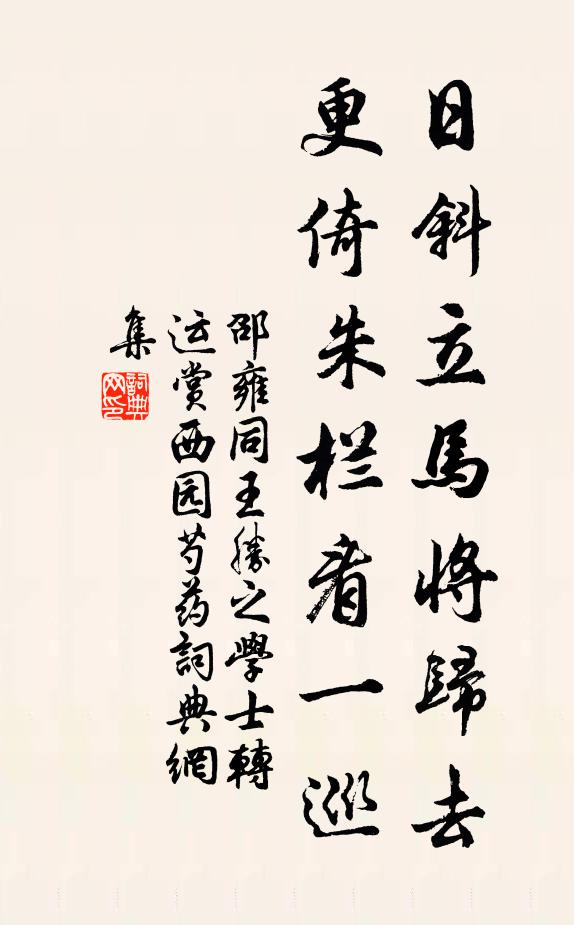 日斜立馬將歸去
更倚朱栏看一巡
邵雍同王勝之學士轉
运賞西园芍药詞典網
集
詞典網印